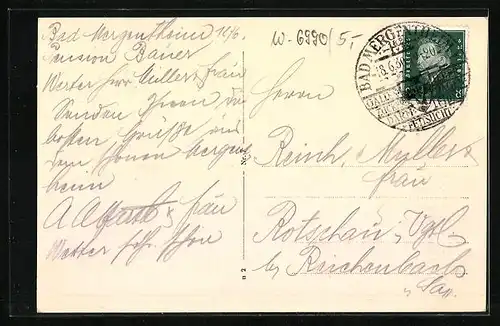 Bad Mergentheim 18/6.
Pension Bauer
Werter Herr Müller & Frau
Senden Ihnen die
besten Grüße aus
dem schönen Mergent
heim
A & Frau
Wetter sehr schön
W-6990/5,-
BAD MERGENTHEIM
18.6.30
Herrn
Reinh. Müller &
Frau
Rotschau i. Vgtl.
bei Reichenbach
i. Sa.